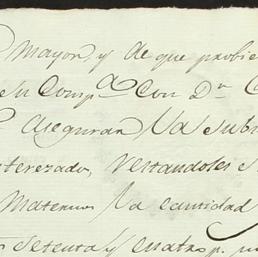 mayor, y de que probie
su Comp.ª Con Dn. C
aseguran la subs
nterezado, restandoles s
Materno la cantidad
setenta y cuatro p.